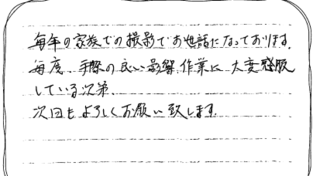 毎年の家族での撮影でお世話になっております。
毎度、手際の良い影響作業に大変感服
している次第。
次回もよろしくお願い致します。